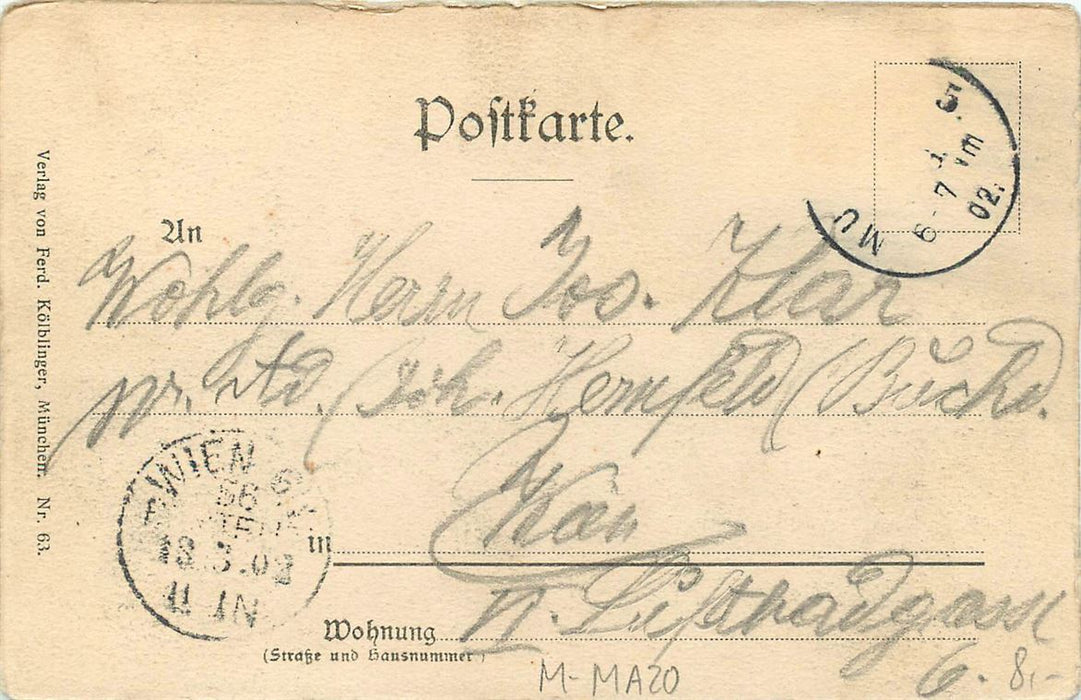 Postkarte.
5.
1
6-7 Vm
02.
MÜ
An
Wohlg. Herrn Jos. Klar
Verlag von Ferd. Kölblinger, München. Nr. 63.
pr. Ad. (Joh. Hernfeld (Buchd.
WIEN
56
02
11 IN
Wien
in
Wohnung
(Straße und Hausnummer)
VI.
6.
8,-
M-MA20